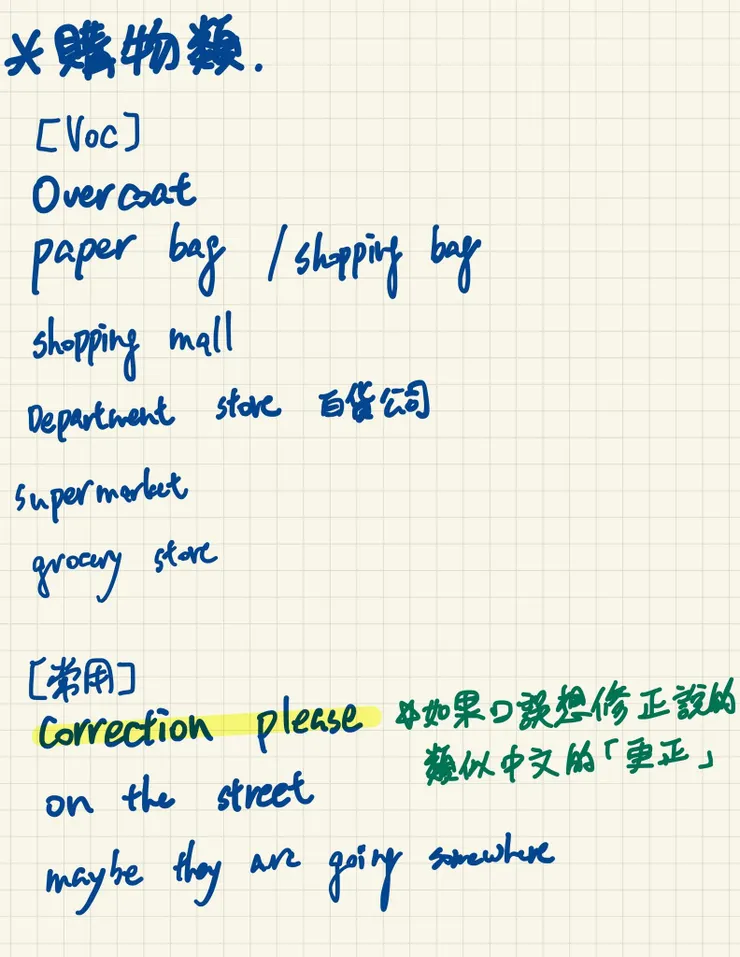 *購物類.
[Voc]
Overcoat
paper bag / shopping bag
shopping mall
Department store 百貨公司
supermarket
grocery store
[常用]
Correction please *如果口誤想修正說的
類似中文的「更正」
on the street
maybe they are going somewhere